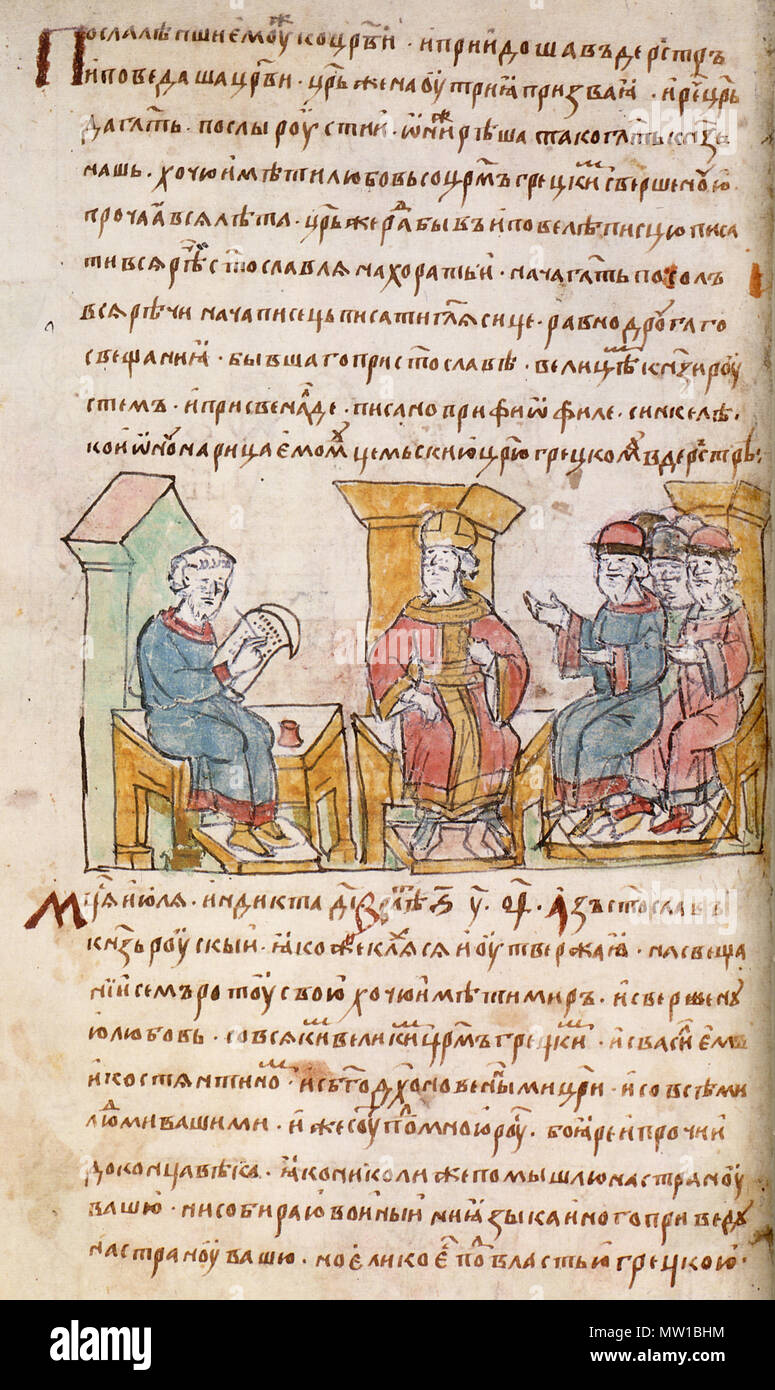 Послалѣпшиемоу҃жкоцр҃ви · ипрıидошавъдерс̑тръ
иповедашацр҃ви · цр҃ьженаоутриꙗпризваꙗ · ирече цр҃ь
даглт҃ь · послыроустии · ѡнижрѣшатакоглт҃ькнз҃ь
нашь · хочюимѣтилюбовьсоцр҃мъгрецкимсвершеноую
прочааꙗвсялѣта · цр҃ьжерадбывъиповелѣписцюписа
тивсярѣчист҃ославлянахоратьи · начаглт҃ьпосолъ
всярѣчиначаписецьписатигл҃ясице · равнодроугаго
свещаниꙗ · бывшагоприст҃ославѣ · велицѣмкнз҃ироу
стемъ · иприсвеналде · писаноприфиѡфиле · синкелѣ ·
киѡномарицаемомуцемьскиюцр҃югрецкомувъдерс̑трѣ ·
Мц҃аиюля · индиктадı҃влѣт ҂ѕ҃ · у҃ · ѻ҃ · азъст҃ославъ
кнз҃ьроускыи · ꙗкожекляхсяиоутвержаю · насвеща
нıисемъротоусвою · хочюимѣтимиръ · исвершену
юлюбовь · совсякимвеликимцр҃мъгрецким · исвасилиемъ
икостянтином · исбг҃одх҃новеными цр҃и · исовсѣми
людмивашими · ижесоутьподомноюроу · боꙗреипрочии
доконцавѣка · ꙗконикколижепомышлюнастраноу
вашю · нисобираювоиныиниꙗзыкаиногоприведу
настраноувашю · ноеликоестьподвластьюгрецкою ·
alamy
alamy
Image ID: MW1BHM
www.alamy.com